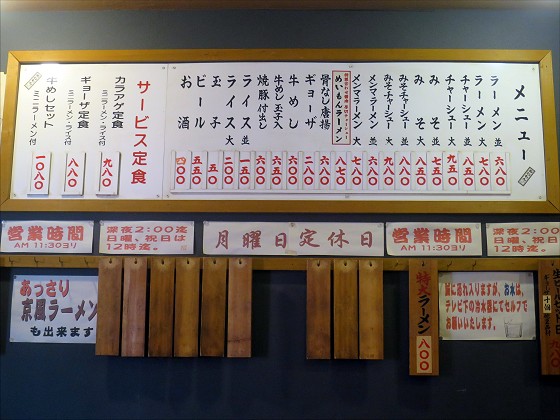 メニュー
ラーメン 並 六八〇
ラーメン 大 七八〇
チャーシュー 並 八五〇
チャーシュー 大 九五〇
みそ 並
みそ 大
みそチャーシュー 並
みそチャーシュー 大
メンマラーメン 並
メンマラーメン 大
めいもんラーメン 八七〇
骨なし唐揚 六八〇
ギョーザ 二八〇
牛めし
牛めし玉子入
焼豚付出し 六〇〇
ライス 大
ライス 並
玉子
ビール
お酒 四〇〇
サービス定食
カラアゲ定食 ミニラーメン・ライス付 九八〇
ギョーザ定食 ミニラーメン・ライス付 八八〇
牛めしセット ミニラーメン付 一〇八〇
営業時間
AM 11:30ヨリ
深夜2:00迄
日曜、祝日は
12時迄。
月曜日定休日
営業時間
AM 11:30ヨリ
深夜2:00迄
日曜、祝日は
12時迄。
あっさり
京風ラーメン
も出来ます
特大ラーメン 八〇〇
誠に恐れ入りますが、お水は、
テレビ下の冷水器にてセルフで
お願いいたします。